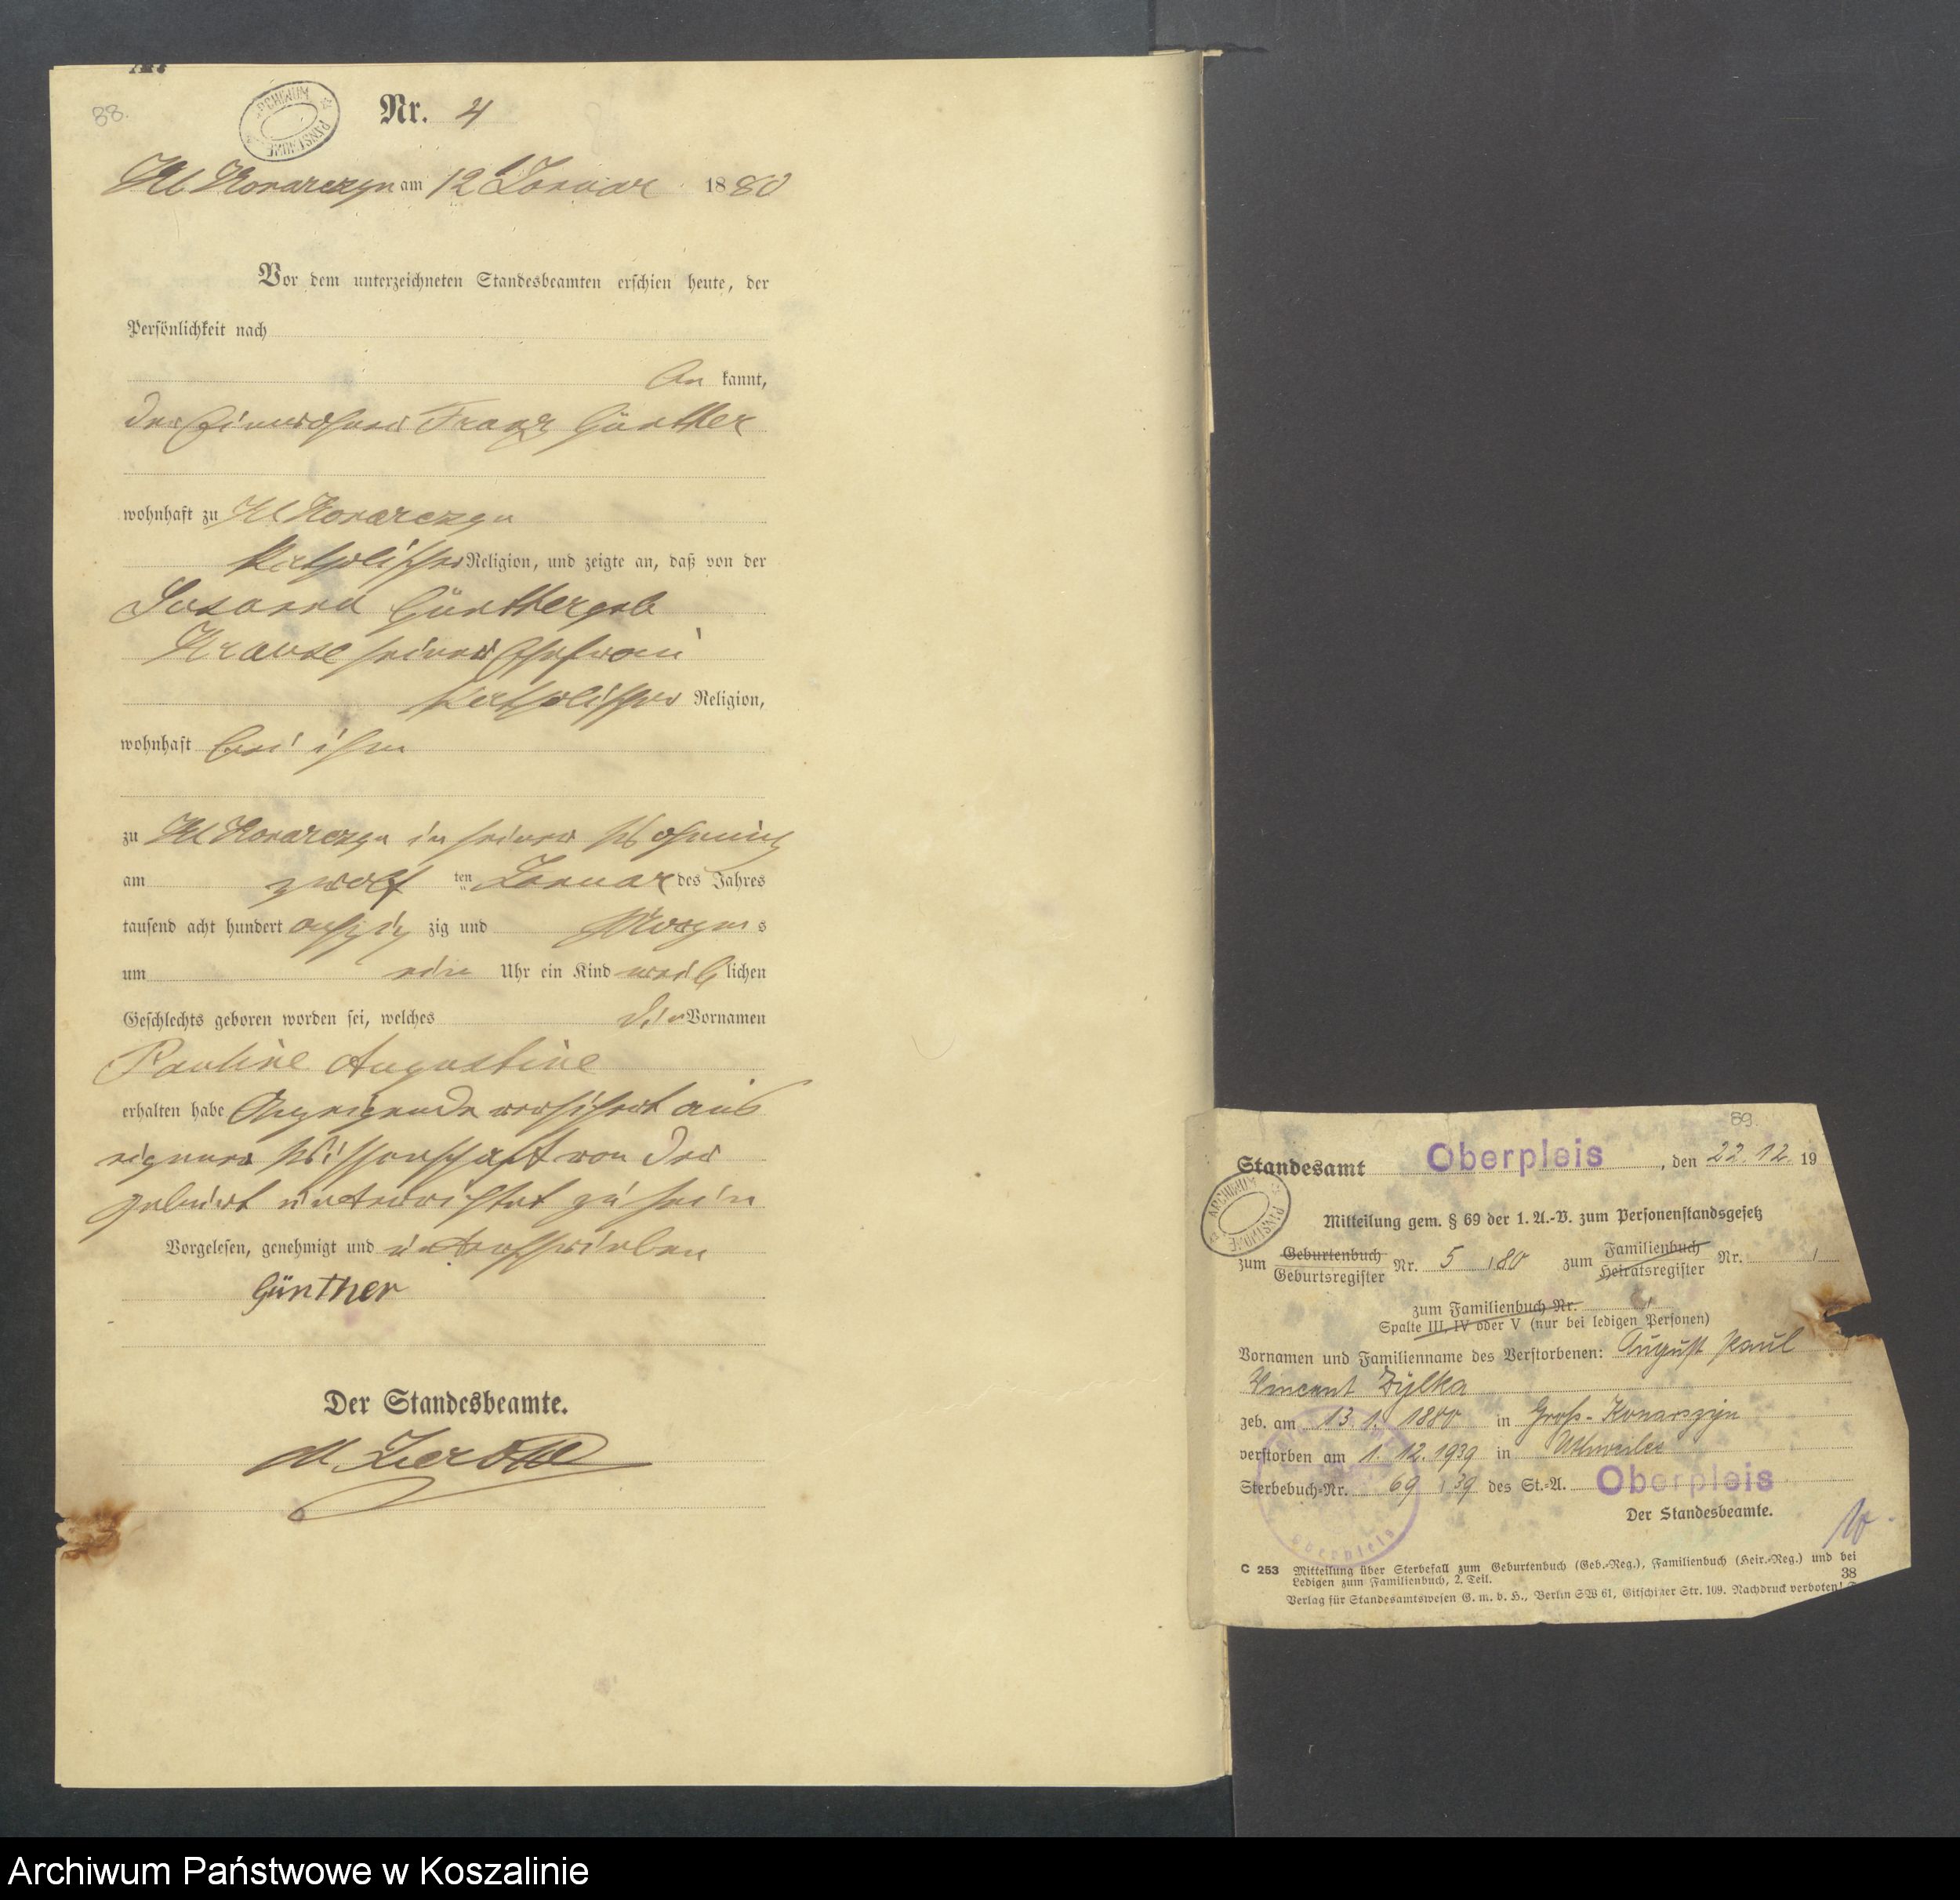 88.
ARCHIWUM PAŃSTWOWE
Nr. 4
Kl Konarczyn am 12 Januar 1880
Vor dem unterzeichneten Standesbeamten erschien heute, der
Persönlichkeit nach
be kannt,
der Einwohner Franz Günther
wohnhaft zu Kl Konarczyn
katholischer Religion, und zeigte an, daß von der
Susanna Günther geb
Krause seiner Ehefrau
katholischer Religion,
wohnhaft bei ihm
zu Kl Konarczyn in seiner Wohnung
am zwölf ten Januar des Jahres
tausend acht hundert achtzig zig und Morgen s
um ein Uhr ein Kind weib lichen
Geschlechts geboren worden sei, welches die Vornamen
Pauline Augustine
erhalten habe Anzeigende versichert aus
eigener Wissenschaft von der
geburt unterrichtet zu sein
Vorgelesen, genehmigt und unterschrieben
Günther
Der Standesbeamte.
89.
Standesamt Oberpleis, den 22.12. 19
ARCHIWUM PAŃSTWOWE
Mitteilung gem. § 69 der 1. A.-V. zum Personenstandsgesetz
zum Geburtenbuch Geburtsregister Nr. 5 / 80 zum Familienbuch Heiratsregister Nr. /
zum Familienbuch Nr. /
Spalte III, IV oder V (nur bei ledigen Personen)
Vornamen und Familienname des Verstorbenen: August Paul
Vincent Zylka
geb. am 13. 1. 1880 in Groß-Konarszyn
verstorben am 1. 12. 1939 in Uthweiler
Sterbebuch-Nr. 69 / 39 des St.-A. Oberpleis
Der Standesbeamte.
Oberpleis
C 253 Mitteilung über Sterbefall zum Geburtenbuch (Geb.-Reg.), Familienbuch (Heir.-Reg.) und bei
Ledigen zum Familienbuch, 2. Teil. 38
Verlag für Standesamtswesen G. m. b. H., Berlin SW 61, Gitschiner Str. 109. Nachdruck verboten!
Archiwum Państwowe w Koszalinie